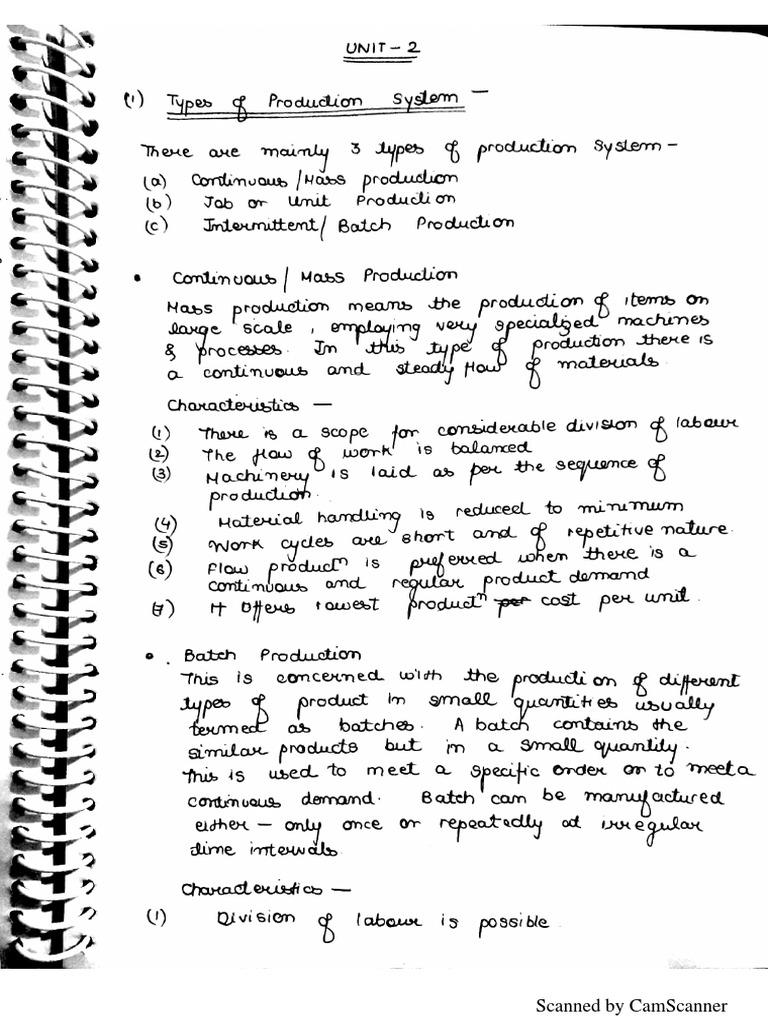 UNIT - 2
(1) Types of Production System —
There are mainly 3 types of production System -
(a) Continuous / Mass production
(b) Job or Unit Production
(c) Intermittent / Batch Production
• Continuous / Mass Production
Mass production means the production of items on
large scale, employing very specialized machines
& processes. In this type of production there is
a continuous and steady flow of materials.
Characteristics —
(1) There is a scope for considerable division of labour
(2) The flow of work is balanced
(3) Machinery is laid as per the sequence of
production.
(4) Material handling is reduced to minimum
(5) Work cycles are short and of repetitive nature.
(6) Flow productⁿ is preferred when there is a
continuous and regular product demand
(7) It offers lowest productⁿ per cost per unit.
• Batch Production
This is concerned with the production of different
types of product in small quantities usually
termed as batches. A batch contains the
similar products but in a small quantity.
This is used to meet a specific order on to meet a
continuous demand. Batch can be manufactured
either - only once or repeatedly at irregular
time intervals.
Characteristics —
(1) Division of labour is possible.
Scanned by CamScanner